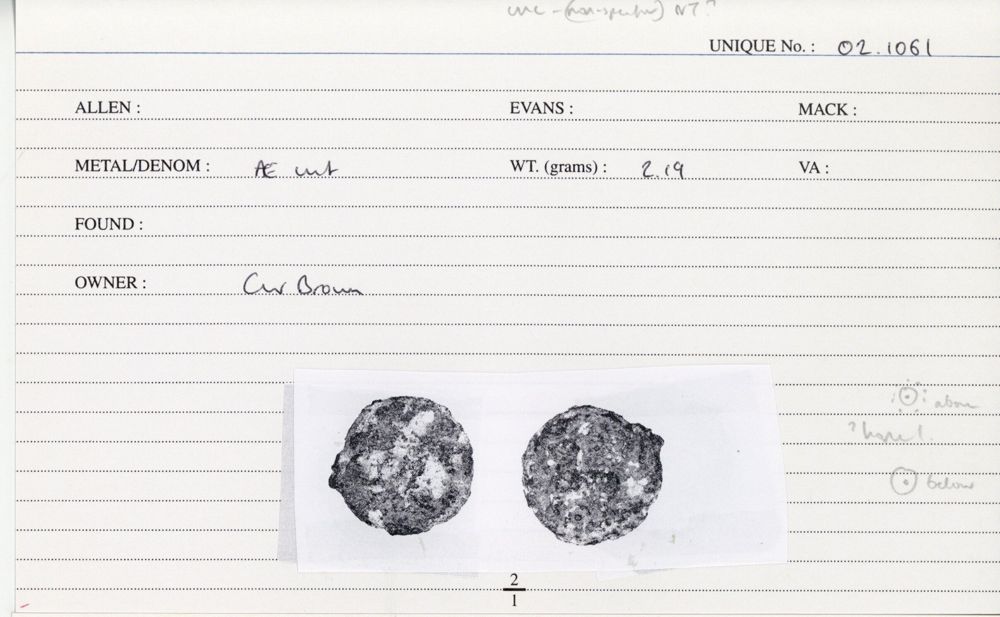 unc - (non-specific) NT?
UNIQUE No. : 02.1061
ALLEN : EVANS : MACK :
METAL/DENOM : Æ unit WT. (grams) : 2.19 VA :
FOUND :
OWNER : CW Brown
above
? horse 1.
below
2
1